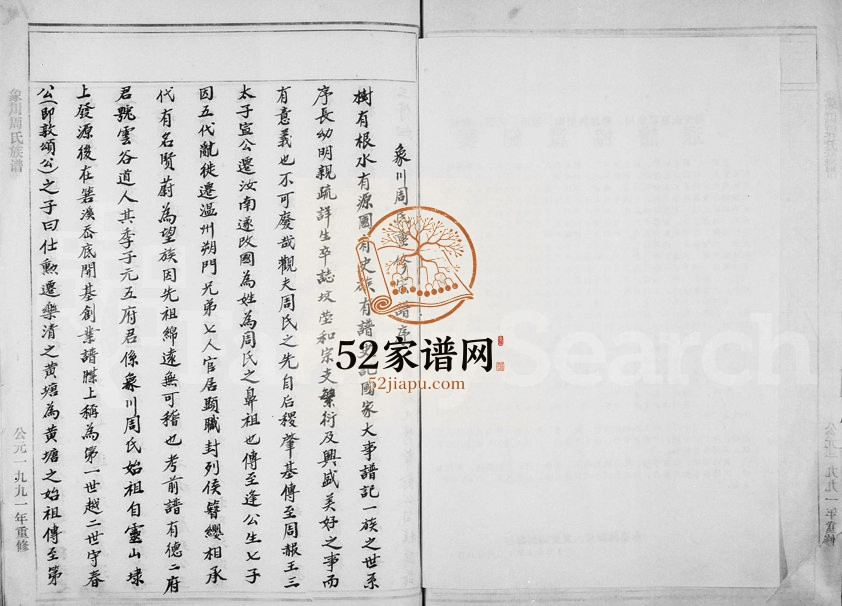 象川周氏重修宗譜序
樹有根水有源國有史族有譜史記國家大事譜記一族之世系
序長幼明親疏詳生卒誌坟茔和宗支繁衍及興盛美好之事而
有意義也不可廢哉觀夫周氏之先自后稷肇基傳至周赧王三
太子宣公遷汝南遂改國為姓為周氏之鼻祖也傳至逢公生七子
因五代亂徙遷温州朔門兄弟七人官居顯職封列侯簪纓相承
代有名賢蔚為望族因先祖綿遠無可稽也考前譜有德二府
君號雲谷道人其季子元五府君係象川周氏始祖自靈山埭
上發源後在箬溪岙底開基創業譜牒上稱為第一世越二世守春
公(即敦頌公)之子曰仕勲遷樂清之黄塘為黄塘之始祖傳至第
象川周氏族谱
公元一九九一年重修
52家谱网
52jiapu.com
Search
公元一九九一年重修